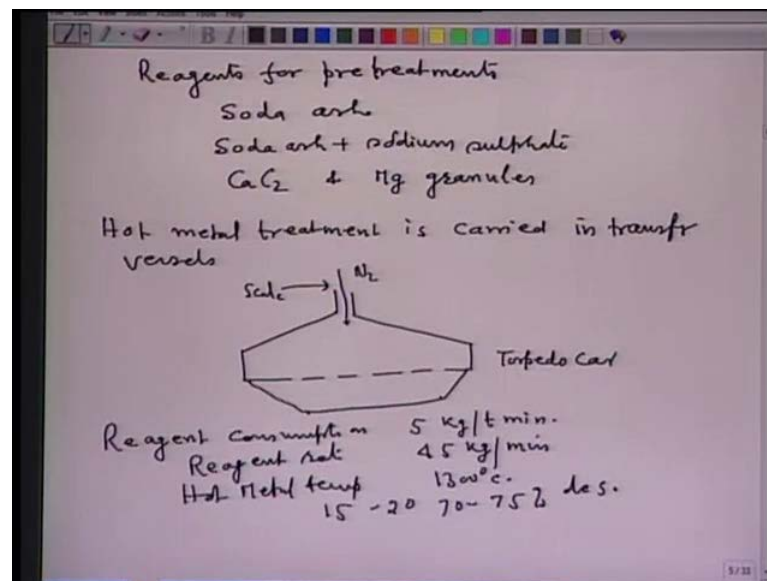 Reagents for pretreatments
Soda ash
Soda ash + sodium sulphate
CaC2 & Mg granules
Hot metal treatment is carried in transfr
vessels
N2
Scale
Torpedo Car
Reagent Consumption 5 kg/t min.
Reagent rate 45 kg/min
Hot Metal temp 1300°C.
15 - 20 70-75% des.
5/33